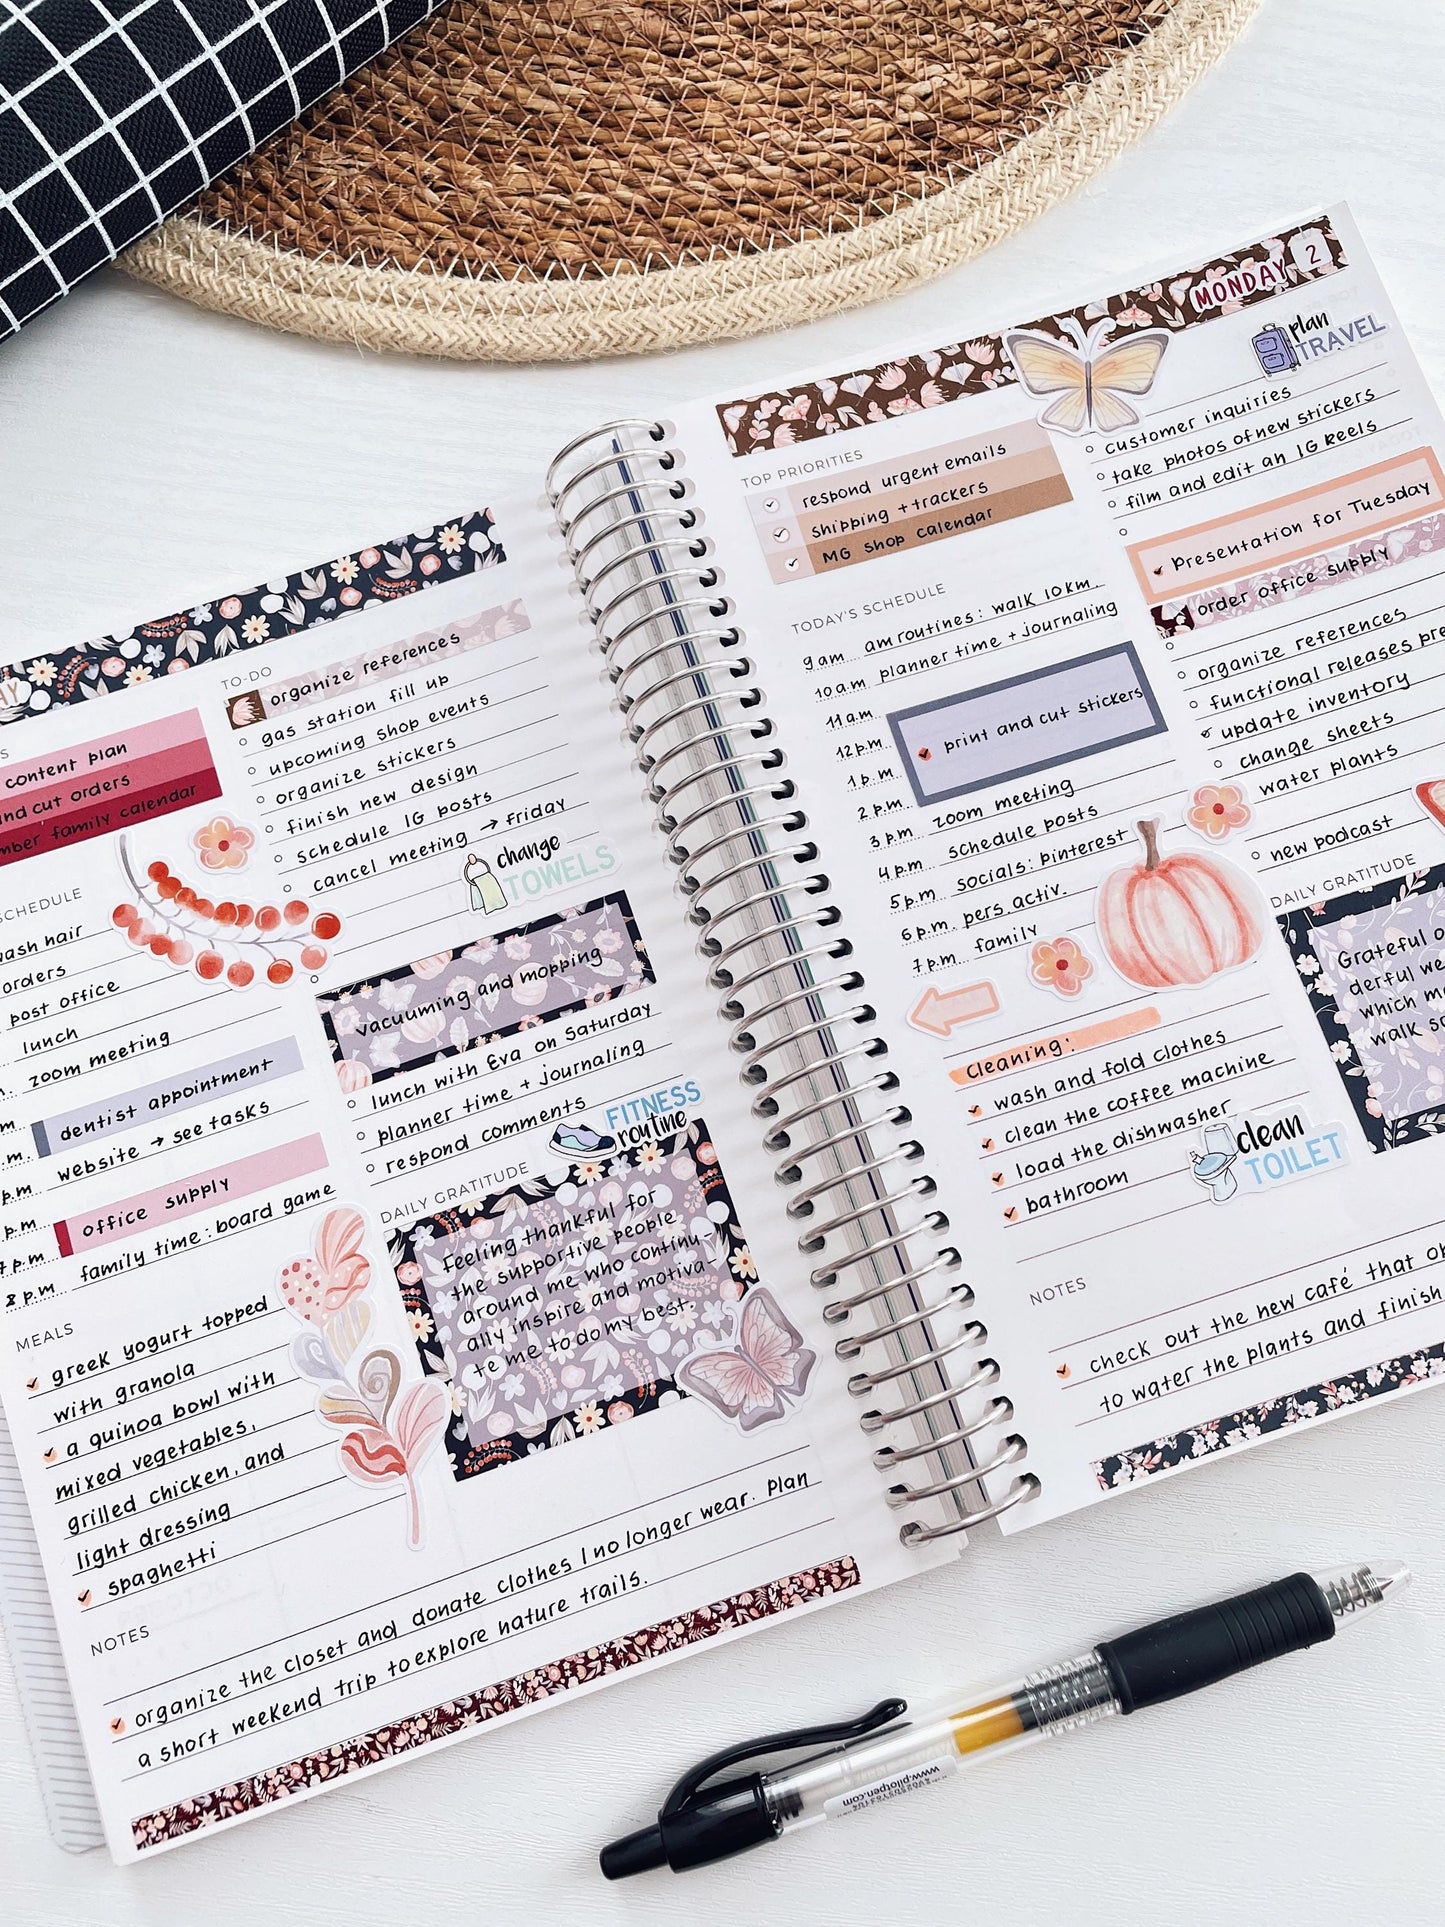 AY
content plan
nd cut orders
mber family calendar
SCHEDULE
ash hair
orders
post office
lunch
zoom meeting
dentist appointment
website → see tasks
office supply
family time: board game
8 p.m.
MEALS
greek yogurt topped
with granola
a quinoa bowl with
mixed vegetables,
grilled chicken, and
light dressing
spaghetti
TO-DO
organize references
gas station fill up
upcoming shop events
organize stickers
finish new design
schedule IG posts
cancel meeting → friday
change
TOWELS
vacuuming and mopping
lunch with Eva on Saturday
planner time + journaling
respond comments
FITNESS
routine
DAILY GRATITUDE
Feeling thankful for
the supportive people
around me who continu-
ally inspire and motiva-
te me to do my best.
NOTES
organize the closet and donate clothes I no longer wear. Plan
a short weekend trip to explore nature trails.
MONDAY 2
TOP PRIORITIES
respond urgent emails
shipping + trackers
MG shop calendar
TODAY'S SCHEDULE
9 am am routines: walk 10km.
10 a.m planner time + journaling
11 a.m
12 p.m print and cut stickers
1 p.m
2 p.m
3 p.m zoom meeting
4 p.m schedule posts
5 p.m socials: pinterest
6 p.m. pers. activ.
7 p.m family
Cleaning:
wash and fold clothes
clean the coffee machine
load the dishwasher
bathroom
clean
TOILET
plan
TRAVEL
customer inquiries
take photos of new stickers
film and edit an IG Reels
Presentation for Tuesday
order office supply
organize references
functional releases pre
update inventory
change sheets
water plants
new podcast
DAILY GRATITUDE
Grateful o
derful we
which m
walk s
NOTES
check out the new café that o
to water the plants and finish
www.pilotpen.com